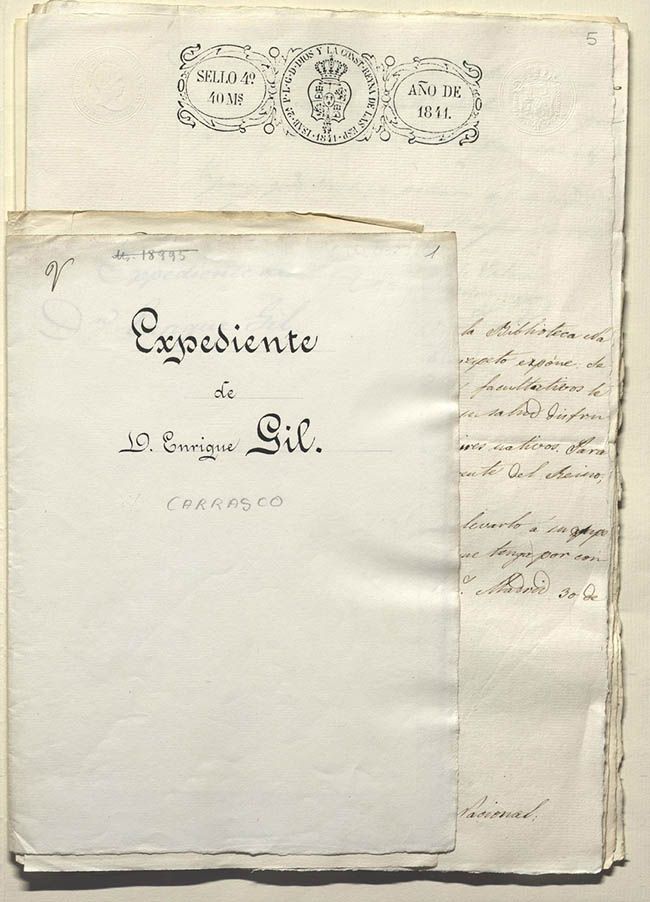 5
SELLO 4º
40 Ms
ISAB. 2ª P. L. G. D. DIOS Y LA CONST. REYNA DE LAS ESP. 1841
AÑO DE
1841.
Ms. 18995
1
Expediente
de
D. Enrique Gil.
CARRASCO
la Biblioteca Na
respeto expone: de
facultativos le
su salud disfru
aires nativos. Para
del Reino,
elevarlo á su
que tenga por con
Madrid 30 de
Nacional.